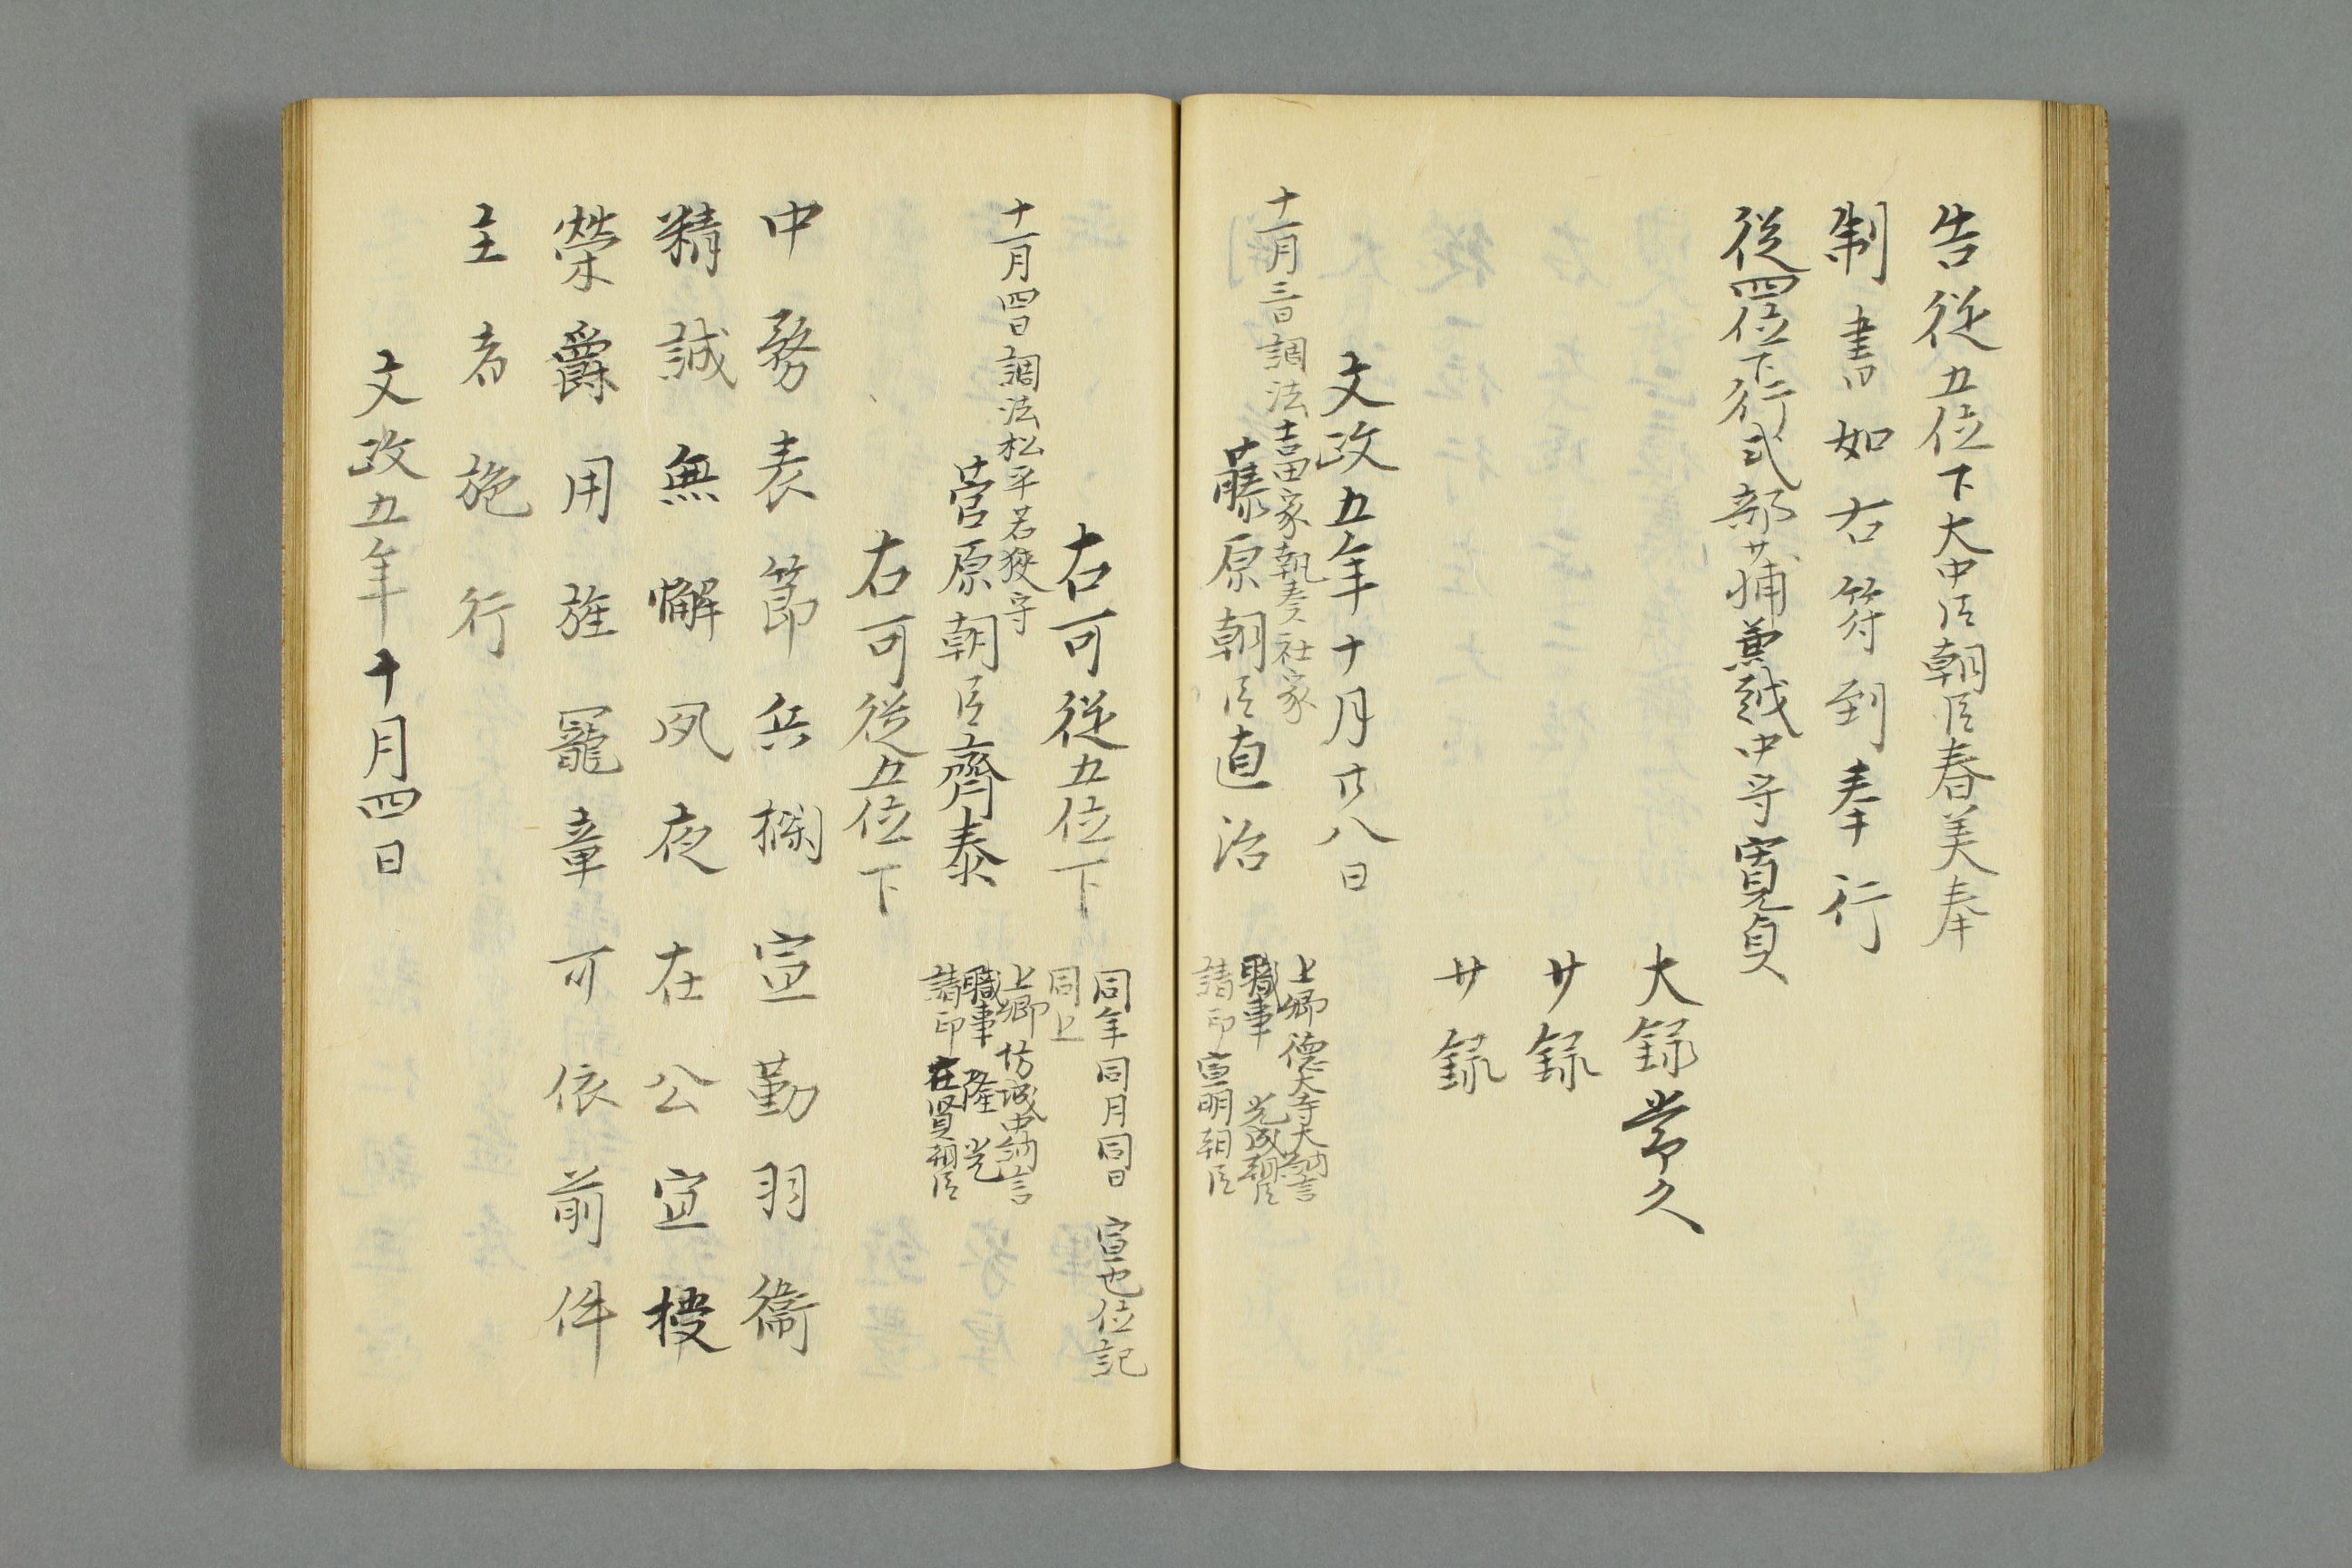 告従五位下大中臣朝臣春美奉
制書如右符到奉行
従四位下行式部少輔兼越中守寛貞
大録常久
少録
少録
文政五年十月廿八日
十一月三日調法吉田家執奏社家
藤原朝臣直治
上卿徳大寺大納言
職事 光成朝臣
請印宣明朝臣
右可従五位下
同年同月同日 宣也位記
同上
十一月四日調法松平若狭守
菅原朝臣齊泰
上卿坊城中納言
職事 隆光
請印在賢朝臣
右可従五位下
中務表節兵欄宣勤羽衞
精誠無懈夙夜在公宜授
榮爵用旌寵章可依前件
主者施行
文政五年十月四日